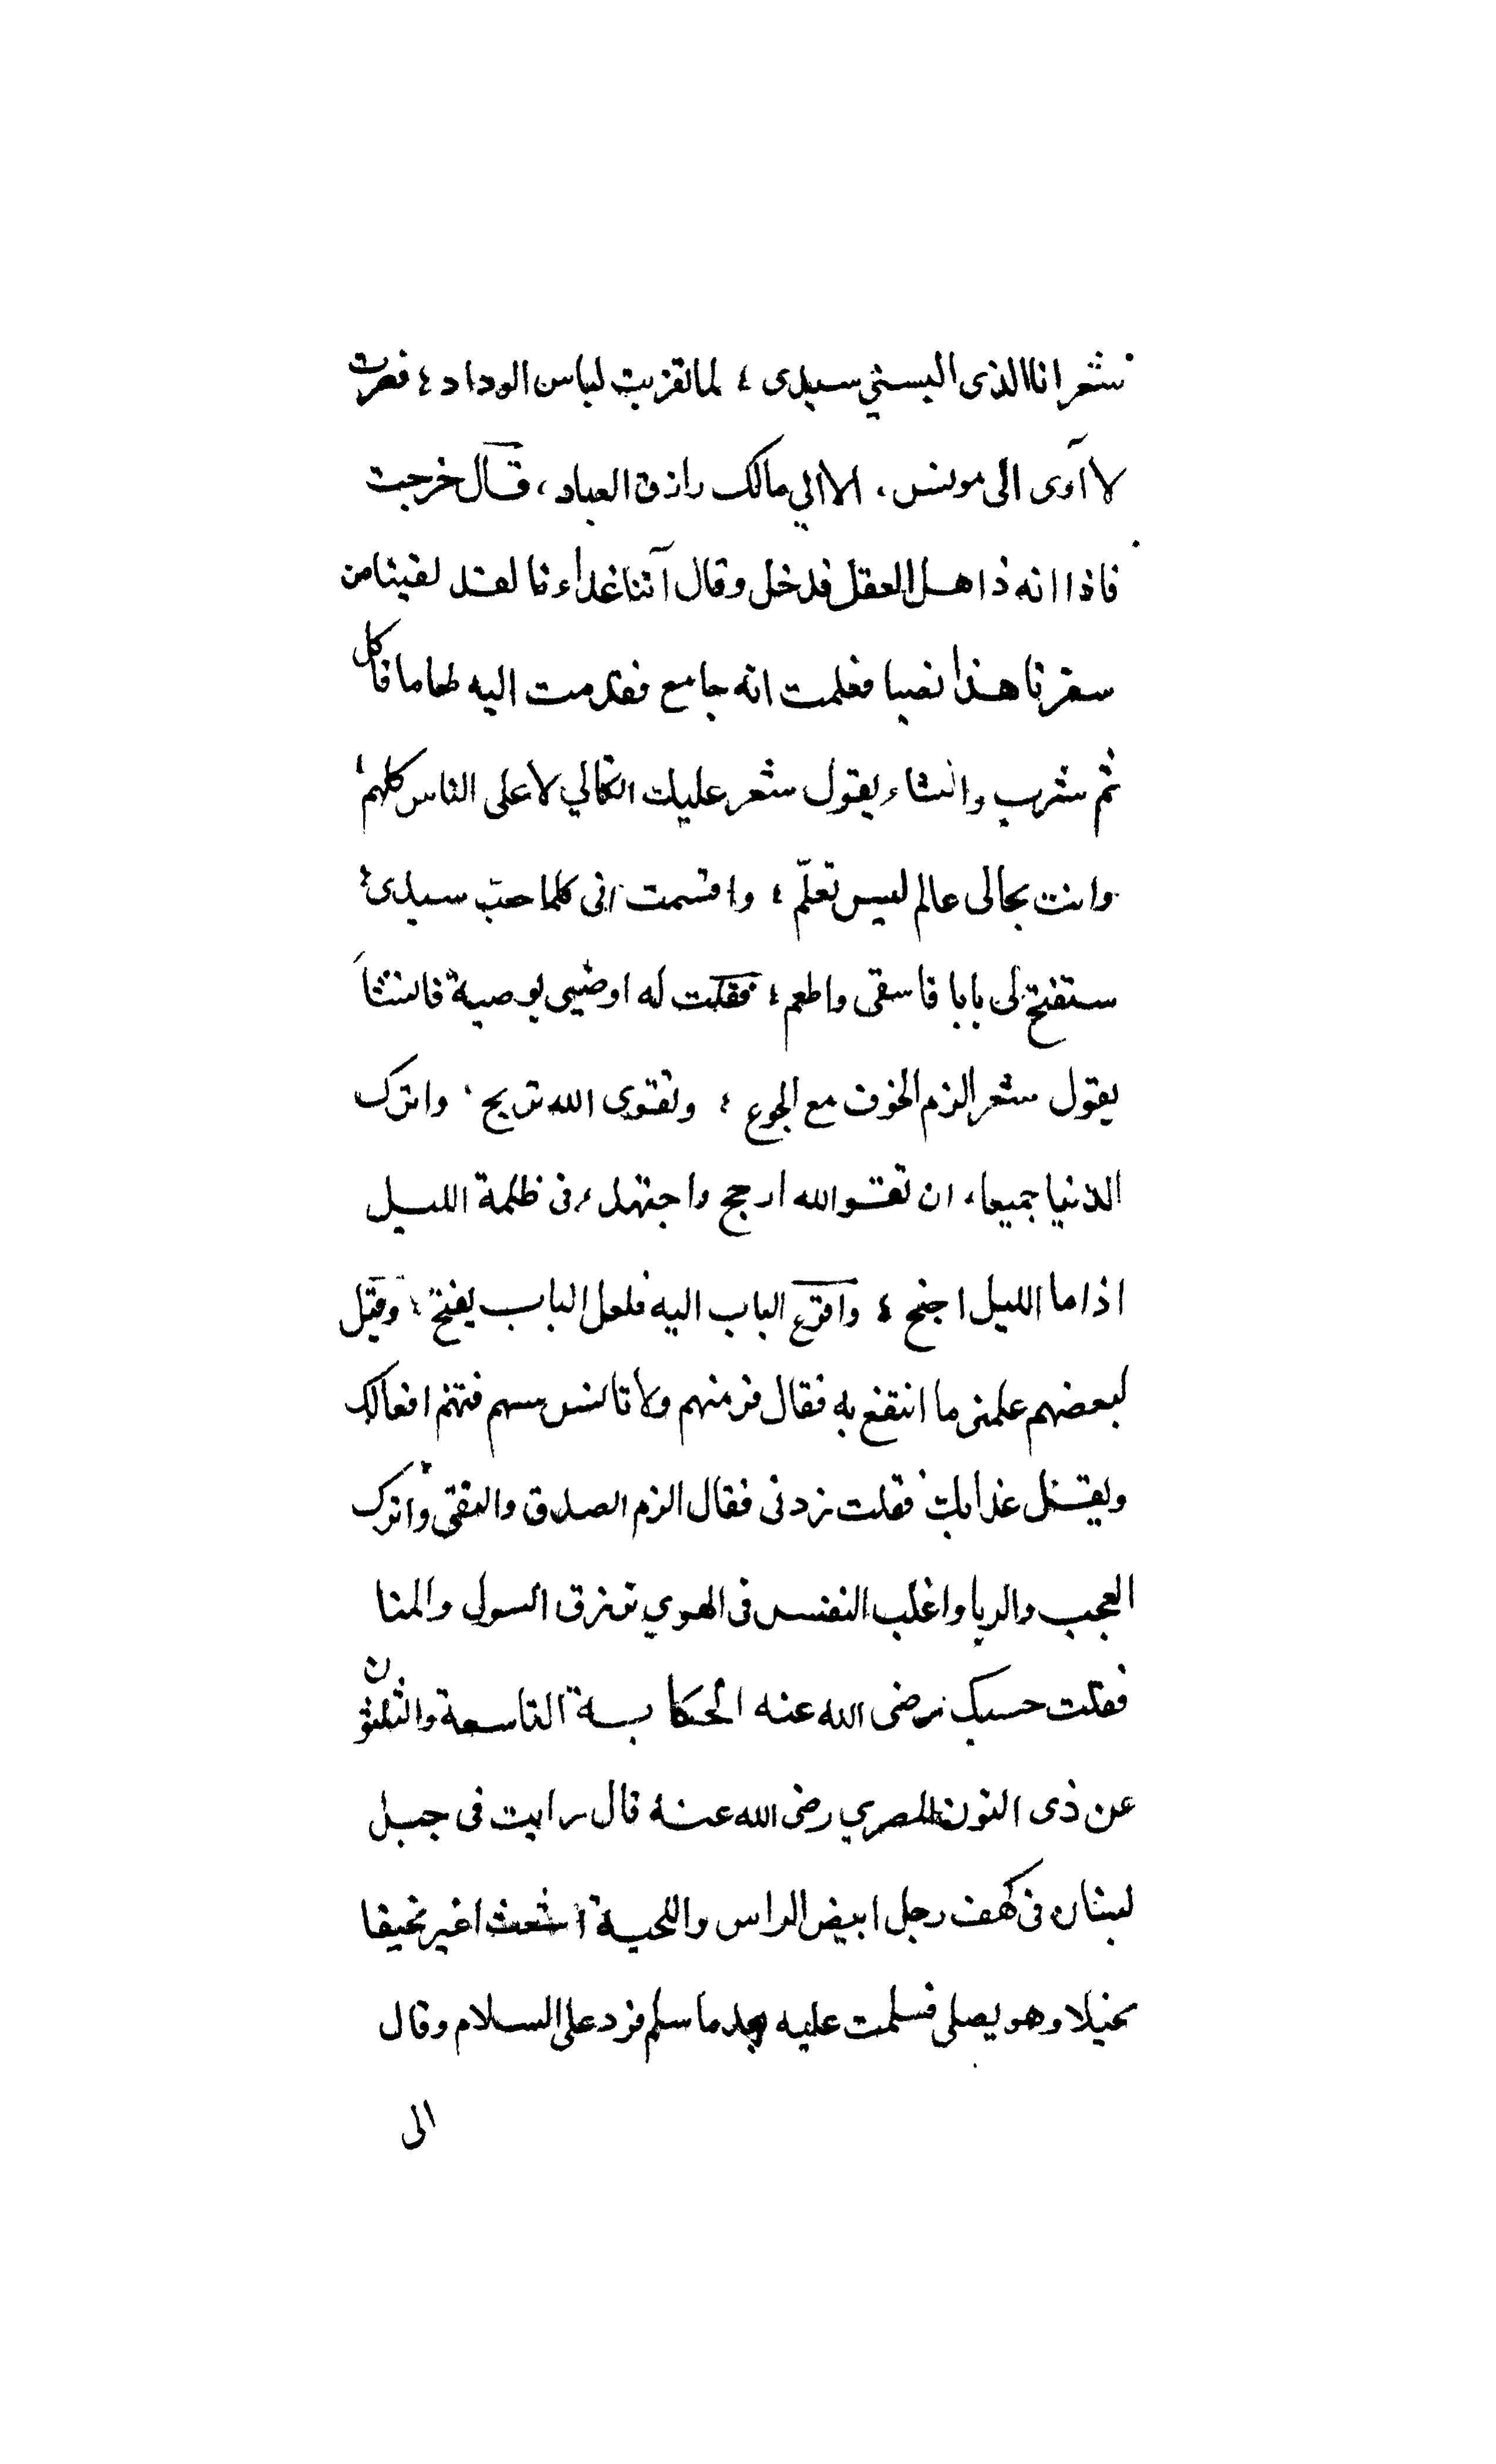 شعر انا الذى البسني سيدى ؛ لما تقربت لباس الوداد ؛ فصرت
لا آوى الى مونس ، الا الي مالك رازق العباد ، قال خرجت
فاذا انه ذاهل العقل فدخل وقال آتنا غداءنا لقد لقينا من
سفرنا هذا نصبا فعلمت انه جامع فقدمت اليه طعاما فاكل
ثم شرب وانشاء يقول شعر عليك اتكالي لا على الناس كلهم ؛
وانت بحالى عالم ليس تعلّم ؛ واقسمت انى كلما حبّ سيدى ؛
ستفتح لى بابا فاسقى واطعم ؛ فقلت له اوصنى بوصية فانشأ
يقول شعر الزم الخوف مع الجوع ؛ وتقوى الله تربح ، واترك
الدنيا جميعا ، ان تقو الله ارجح واجتهد فى ظلمة الليل
اذاما الليل اجنح ؛ واقرع الباب اليه فلعل الباب يفتح ؛ وقيل
لبعضهم علمنى ما انتفع به فقال فر منهم ولا تانس بهم فتهنم افعالك
ويقتل عذابك فقلت زدنى فقال الزم الصدق والتقى واترك
العجب والريا واغلب النفس فى الهوي ترزق السول والمنا
فقلت حسبك رضى الله عنه الحكاية التاسعة والثلثون
عن ذى النون المصري رضى الله عنه قال رايت فى جبل
لبنان فى كهف رجل ابيض الراس واللحية اشعث اغبر نحيفا
نحيلا وهو يصلى فسلمت عليه بعد ما سلم فرد على السلام وقال
الى